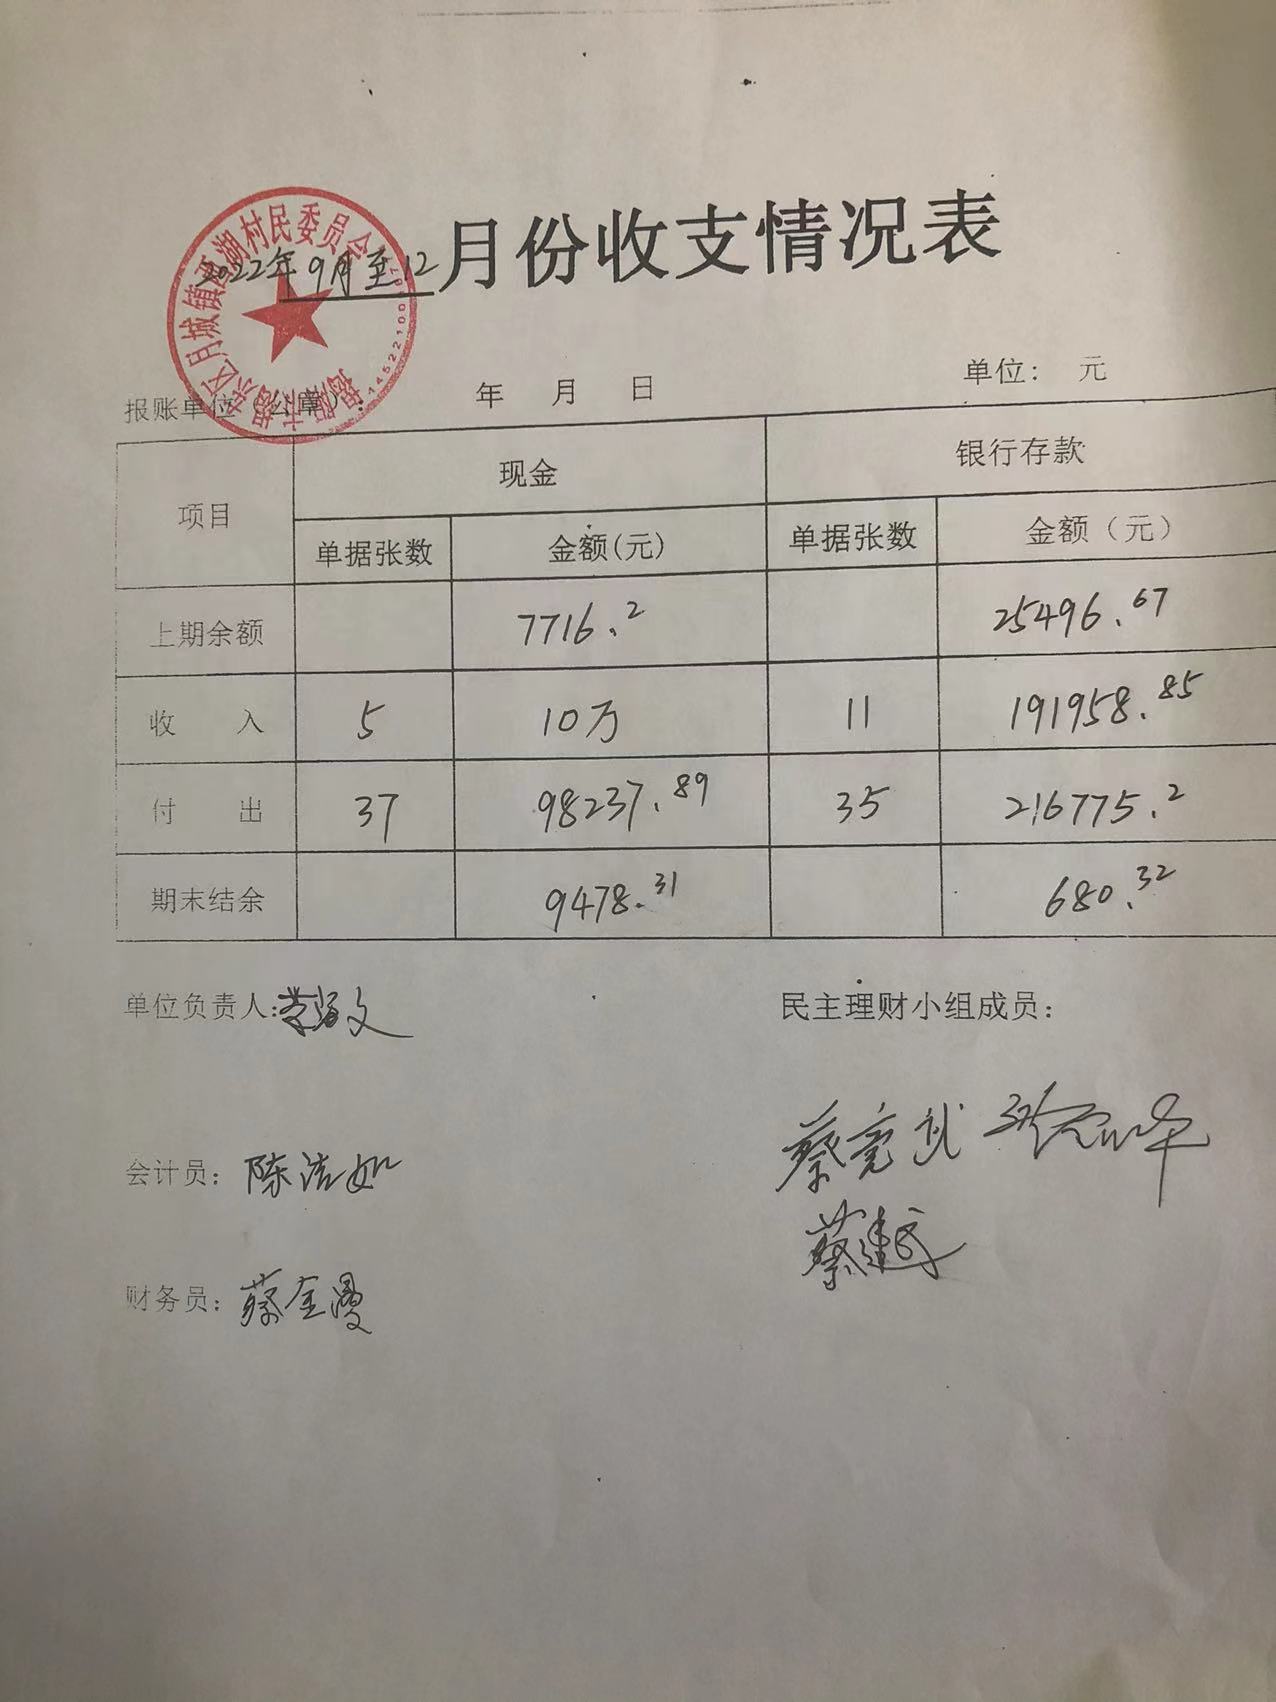 2022年9月至12月份收支情况表
报账单位（公章）： 年 月 日 单位： 元
项目 现金 银行存款
单据张数 金额(元) 单据张数 金额（元）
上期余额 7716.2 25496.67
收 入 5 10万 11 191958.85
付 出 37 98237.89 35 216775.2
期末结余 9478.31 680.32
单位负责人: 民主理财小组成员：
蔡亮武
会计员：陈洁如
蔡建武
财务员：蔡金漫